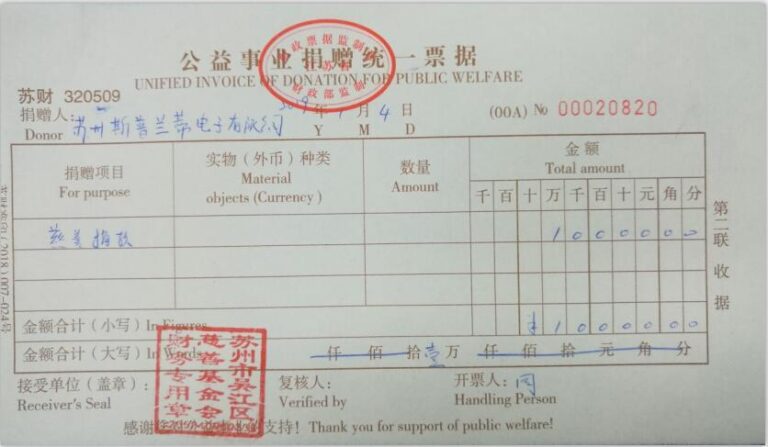 公益事业捐赠统一票据
UNIFIED INVOICE OF DONATION FOR PUBLIC WELFARE
财政票据监制
财政部监制
苏财 320509
捐赠人：苏州斯普兰蒂电子有限公司
Donor
2019年1月4日
Y M D
(00A) No 00020820
捐赠项目 实物（外币）种类 数量 金额
For purpose Material Amount Total amount
objects (Currency)
千 百 十 万 千 百 十 元 角 分
慈善捐款 1 0 0 0 0 0 0
金额合计（小写）In Figures ¥ 1 0 0 0 0 0 0
金额合计（大写）In Words 仟 佰 拾 壹万 仟 佰 拾 元 角 分
接受单位（盖章）： 复核人： 开票人：闫
Receiver's Seal Verified by Handling Person
苏州市吴江区
慈善基金会
财务专用章
感谢 支持！ Thank you for support of public welfare!
第二联 收据
(2018) 007-024号